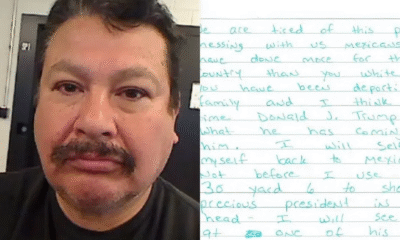 e are tired of this p
messing with us mexicans
have done more for th
country than you white
You have been deporti
family and I think
ime Donald J. Trump
what he has comin
him. I will sel
myself back to Mexi
Not before I use
30 yard 6 to sho
precious president in
head - I will see
at one of his